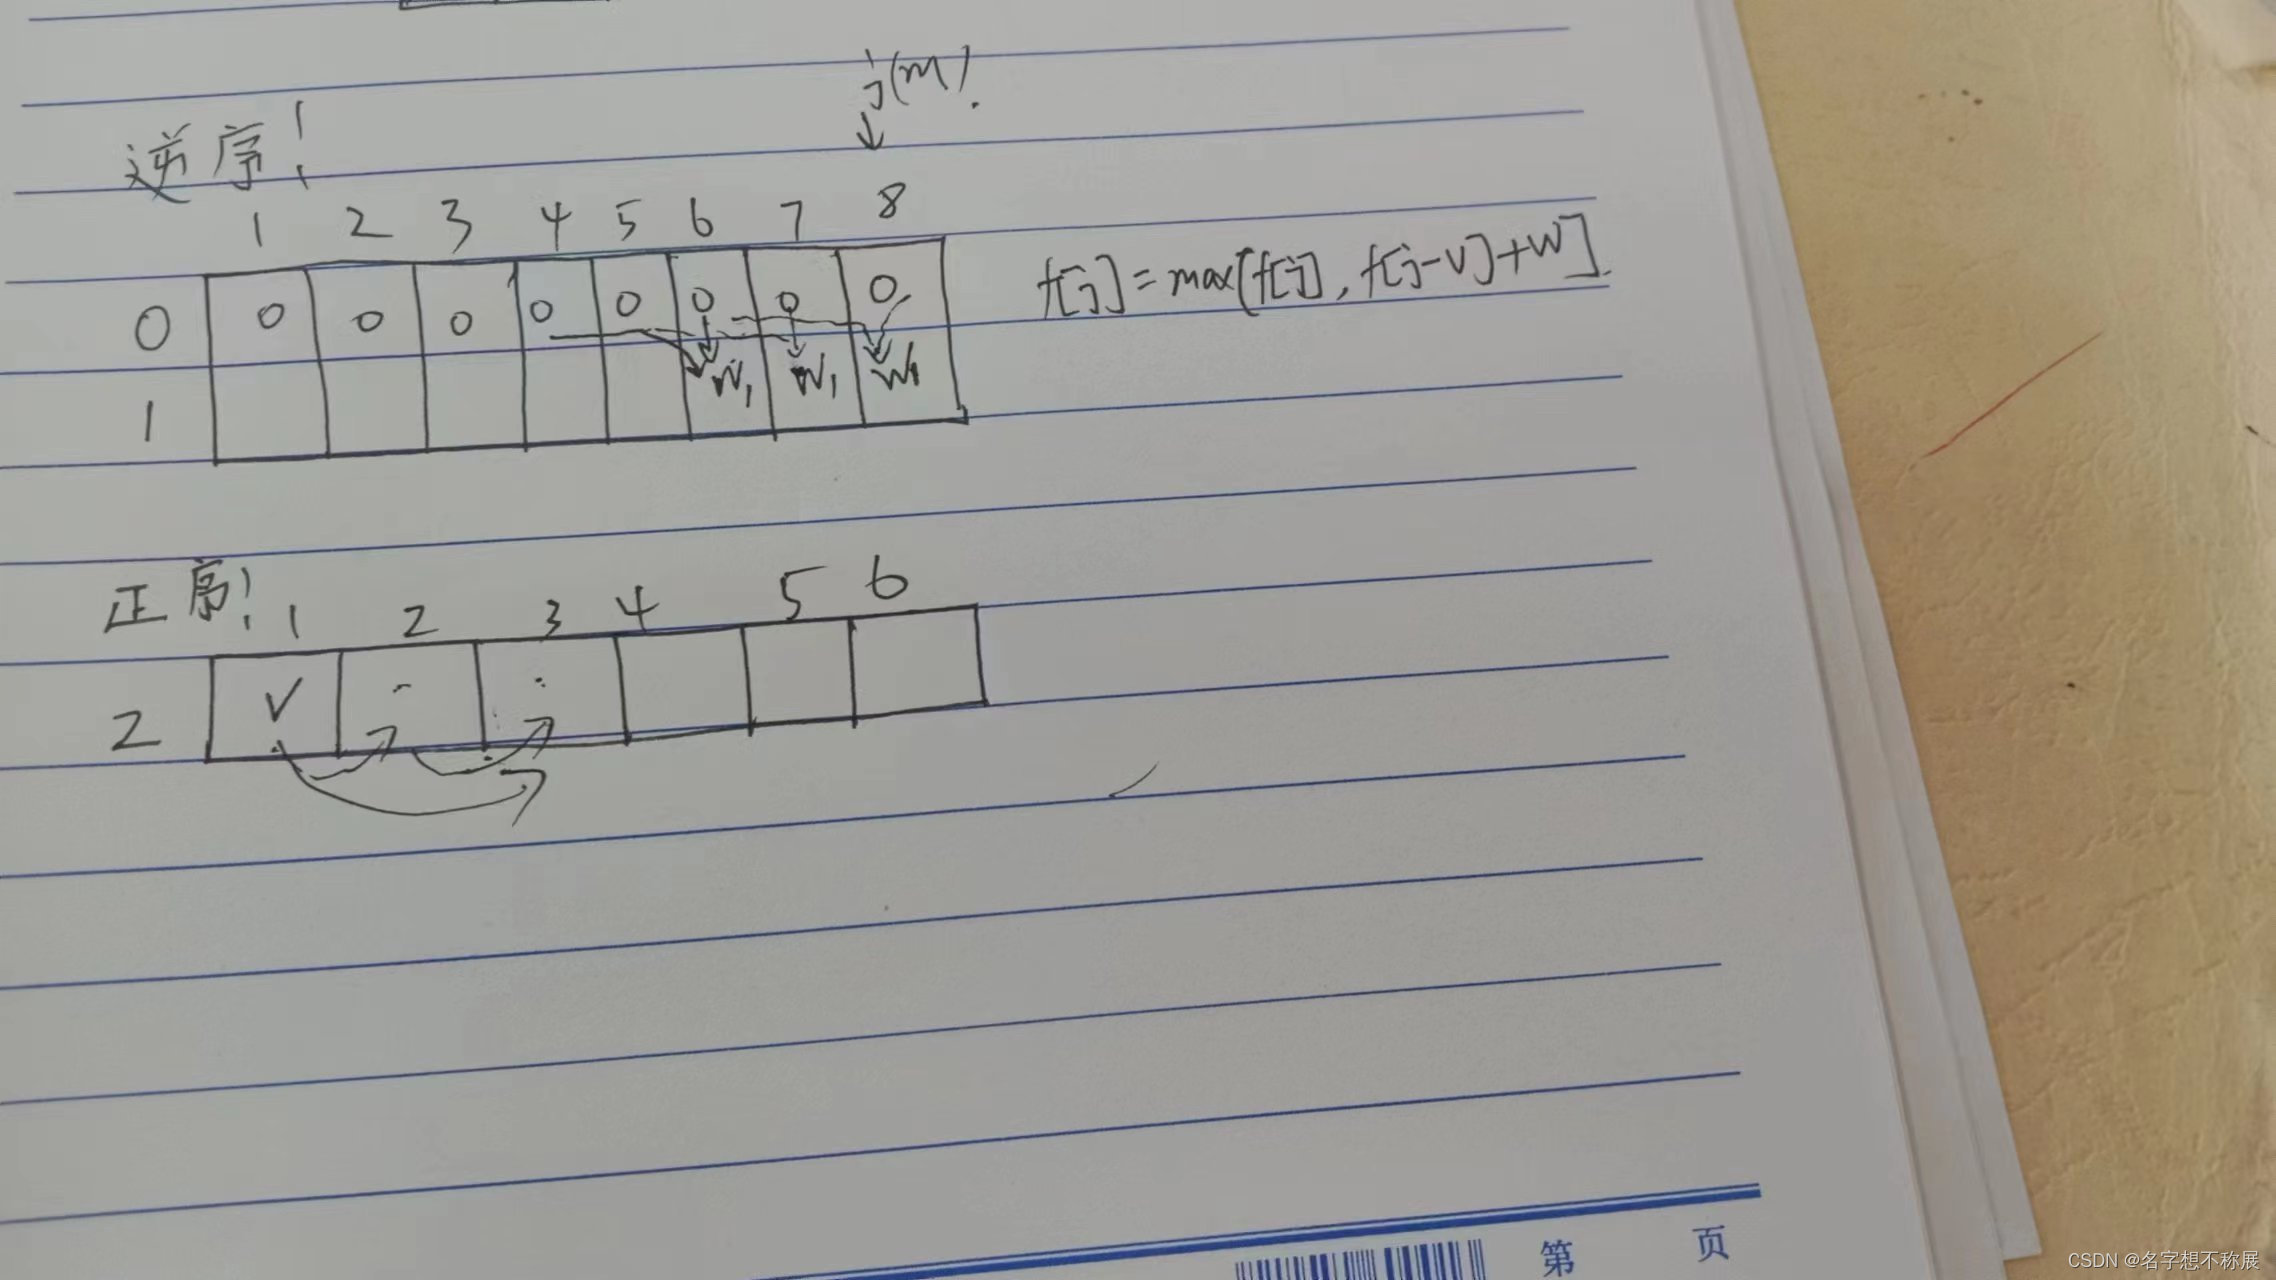 j(m).
逆序!
1 2 3 4 5 6 7 8
0 0 0 0 0 0 0 0 0
f[j]=max[f[j],f[j-v]+w].
W₁ W₁ W₁
1
正序!
1 2 3 4 5 6
2 V
第 页
CSDN @名字想不称展